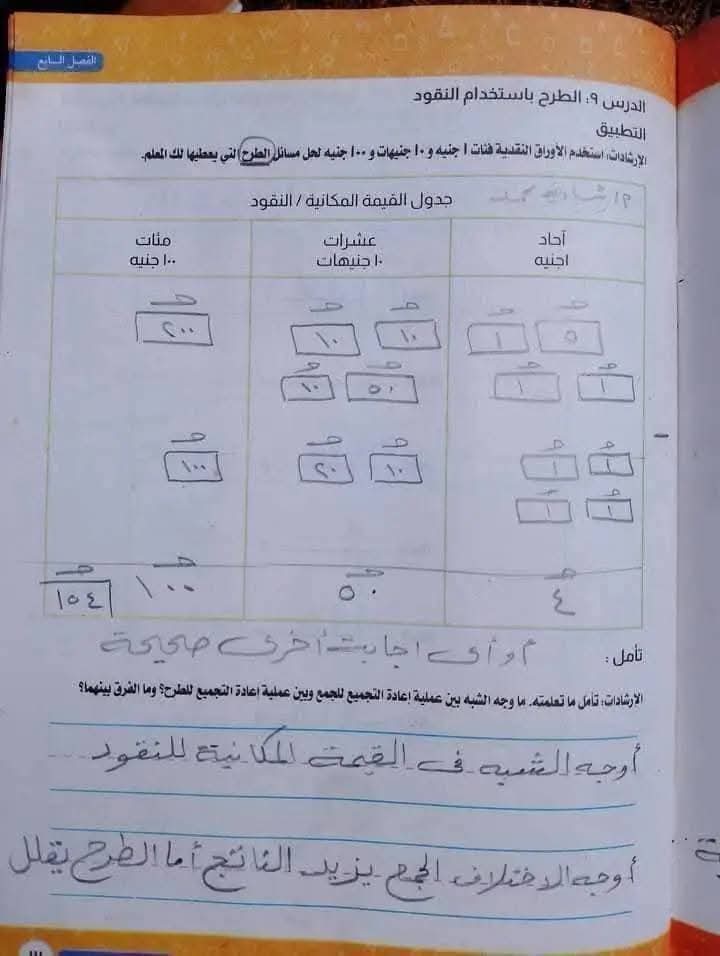 الفصل السابع
الدرس ٩: الطرح باستخدام النقود
التطبيق
الإرشادات: استخدم الأوراق النقدية فئات ١ جنيه و ١٠ جنيهات و ١٠٠ جنيه لحل مسائل الطرح التي يعطيها لك المعلم.
جدول القيمة المكانية / النقود
آحاد عشرات مئات
١ جنيه ١٠ جنيهات ١٠٠ جنيه
حـ حـ حـ حـ حـ
٥ ١ ١٠ ١٠ ٢٠٠
حـ حـ حـ حـ
١ ١ ٥٠ ١٠
حـ حـ حـ حـ حـ
١ ١ ١٠ ٢٠ ١٠٠
حـ حـ
١ ١
-
حـ حـ حـ حـ
٤ ٥٠ ١٠٠ ١٥٤
تأمل: أو أى اجابة أخرى صحيحة
الإرشادات: تأمل ما تعلمته. ما وجه الشبه بين عملية إعادة التجميع للجمع وبين عملية إعادة التجميع للطرح؟ وما الفرق بينهما؟
أوجه الشبه فى القيمة المكانية للنقود
أوجه الاختلاف الجمع يزيد الناتج أما الطرح يقلل